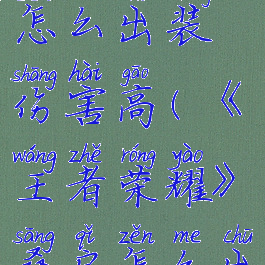 怎么出装
shāng hài gāo
伤害高(《
wáng zhě róng yào
王者荣耀》
sāng qǐ zěn me chū
桑启怎么出